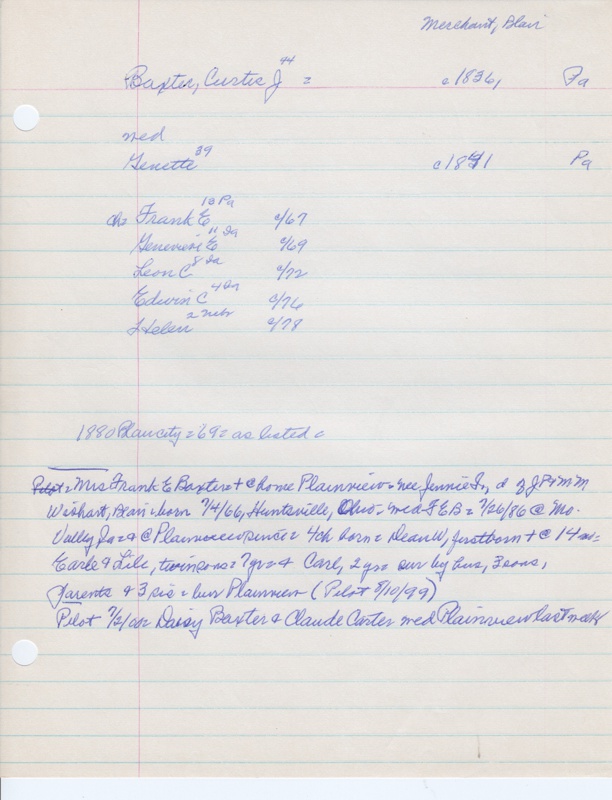 Merchant, Blair
Baxter, Curtis J 44 = c 1836, Pa
med
Genette 39 c 1841 Pa
ch= Frank E 13 Pa c/67
Genevieve E 11 Ia c/69
Leon C 8 Ia c/72
Edwin C 4 Ia c/76
Helen 2 Nebr c/78
1880 Plancity = 69 = as listed =
Pilot = Mrs Frank E Baxter = + @ home Plainview = nee Jennie Is, d of J P & M M
Wishart, Blair = born 7/4/66, Huntsville, Ohio = med F E B = 7/26/86 @ Mo.
Vally Ia = & @ Plainview since = 4ch born = Dean W, firstborn + @ 14 mo =
Earle & Lile, twin sons = 7 yrs = & Carl, 2 yrs = sur by hus, 3 sons,
parents & 3 sis = bur Plainview (Pilot 8/10/99)
Pilot 7/2/02 = Daisy Baxter & Claude Carter med Plainview last week